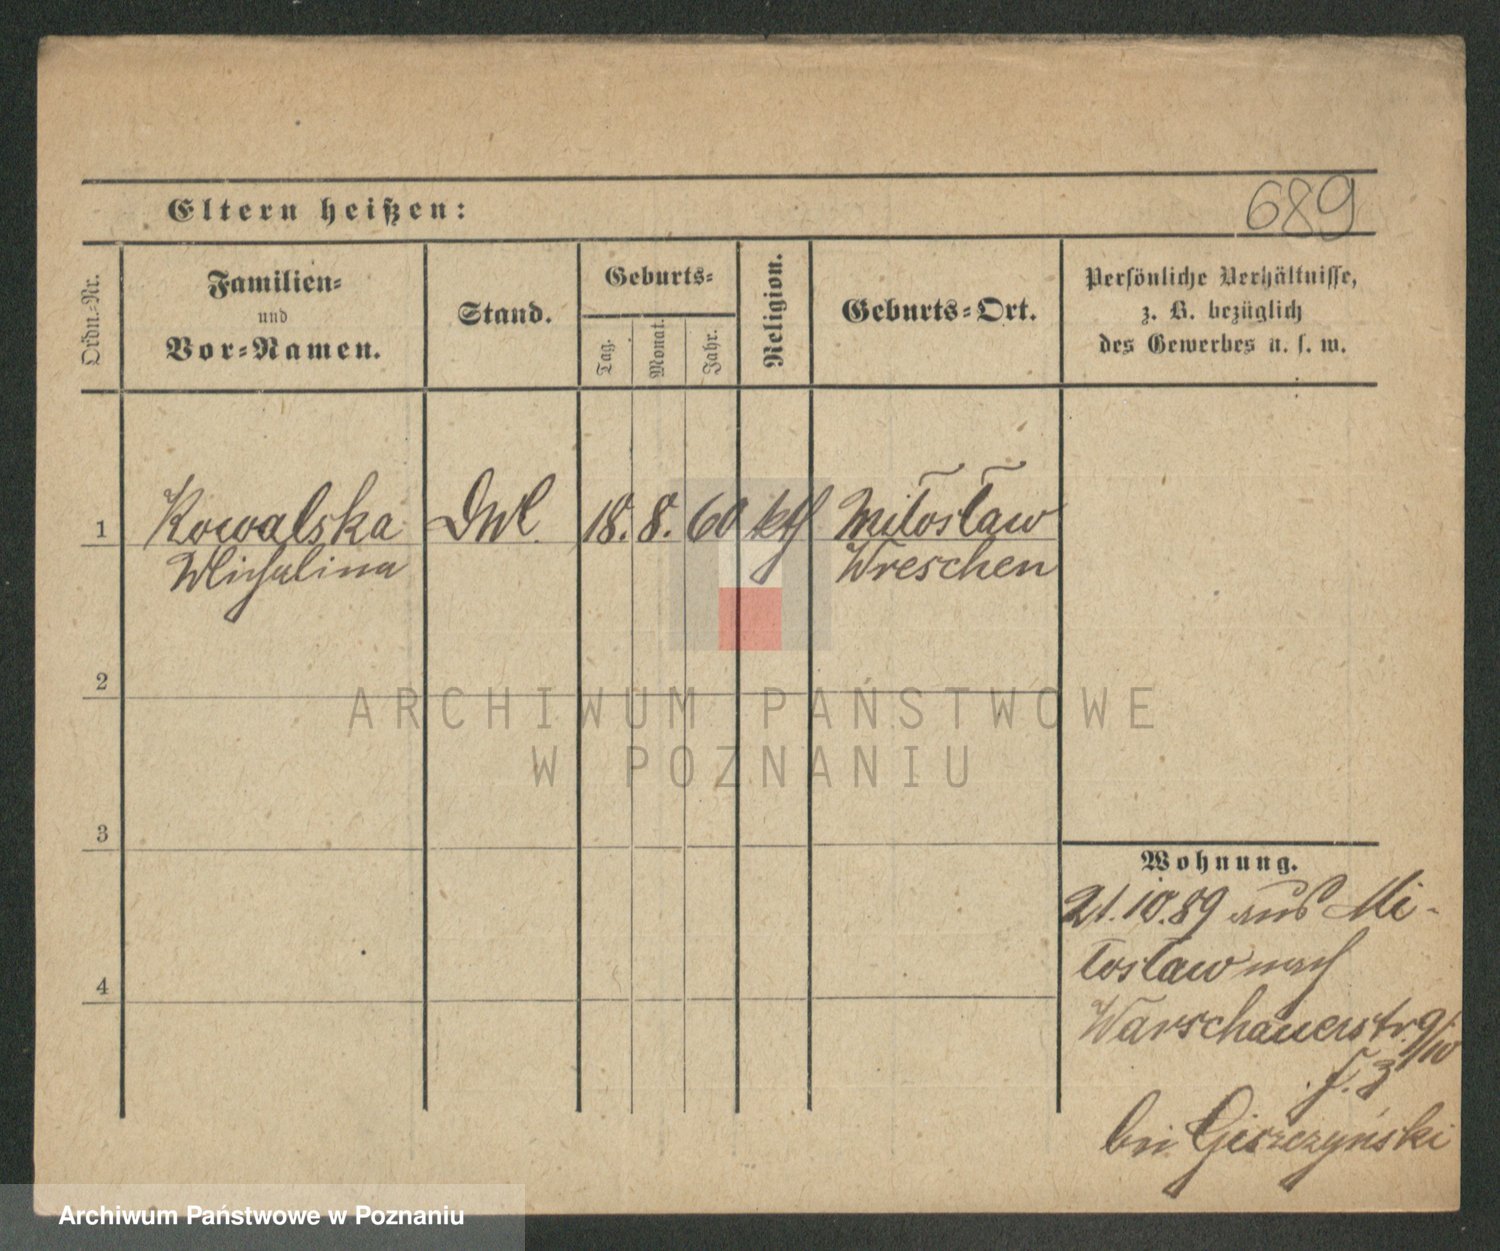 689
Eltern heißen:
Ordn.-Nr.
Familien-
und
Vor-Namen.
Stand.
Geburts-
Tag.
Monat.
Jahr.
Religion.
Geburts-Ort.
Persönliche Verhältnisse,
z. B. bezüglich
des Gewerbes u. s. w.
1 Kowalska 18. 8. 60 kth Miłosław
Michalina Wreschen
2
3
4
Wohnung.
21.10.89 aus Mi-
łosław nach
Warschauerstr. 9/10
bei
ARCHIWUM PAŃSTWOWE
W POZNANIU
Archiwum Państwowe w Poznaniu